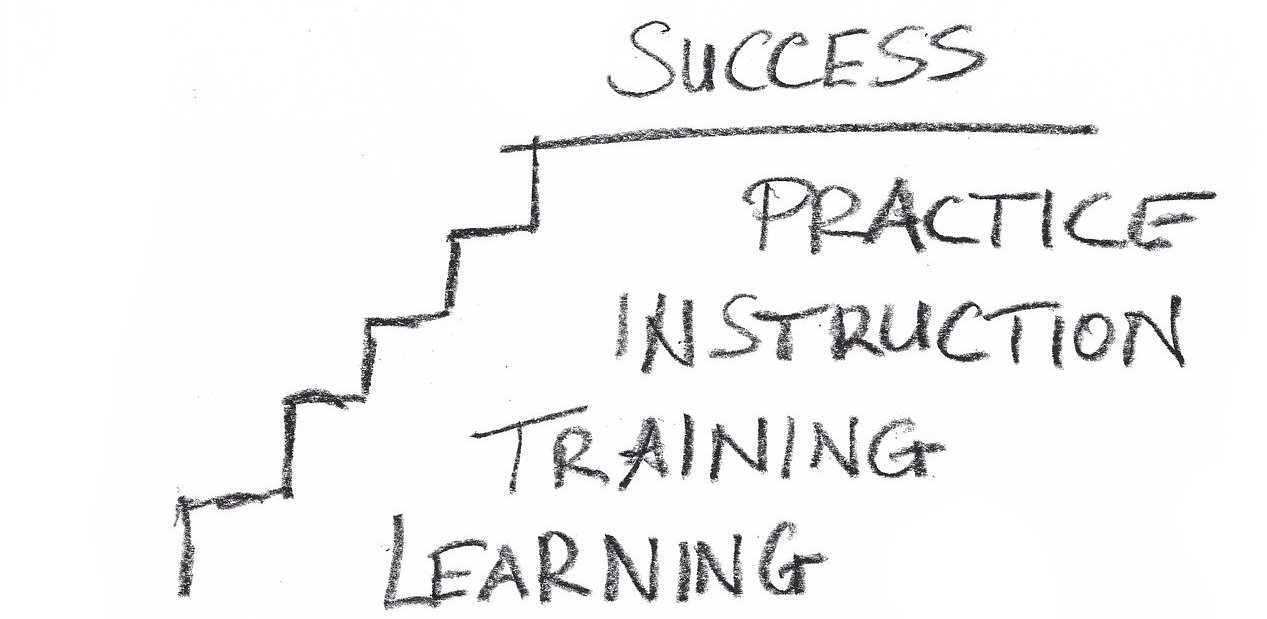 SUCCESS
PRACTICE
INSTRUCTION
TRAINING
LEARNING